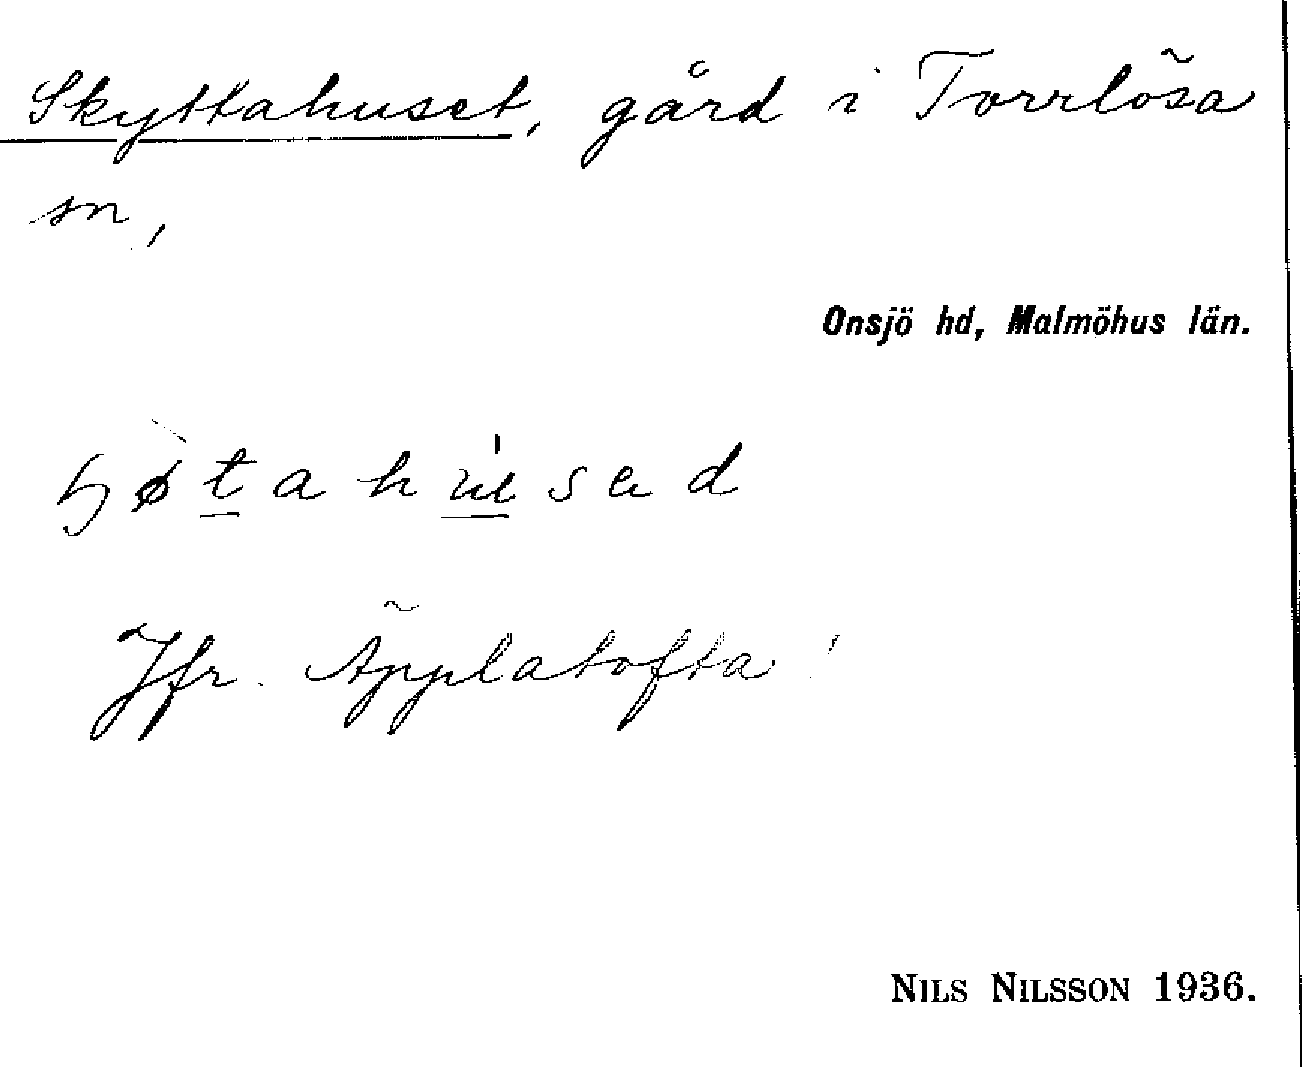 Skyttahuset, gård i Torrlösa
sn,
Onsjö hd, Malmöhus län.
Jfr. Äpplatofta!
NILS NILSSON 1936.